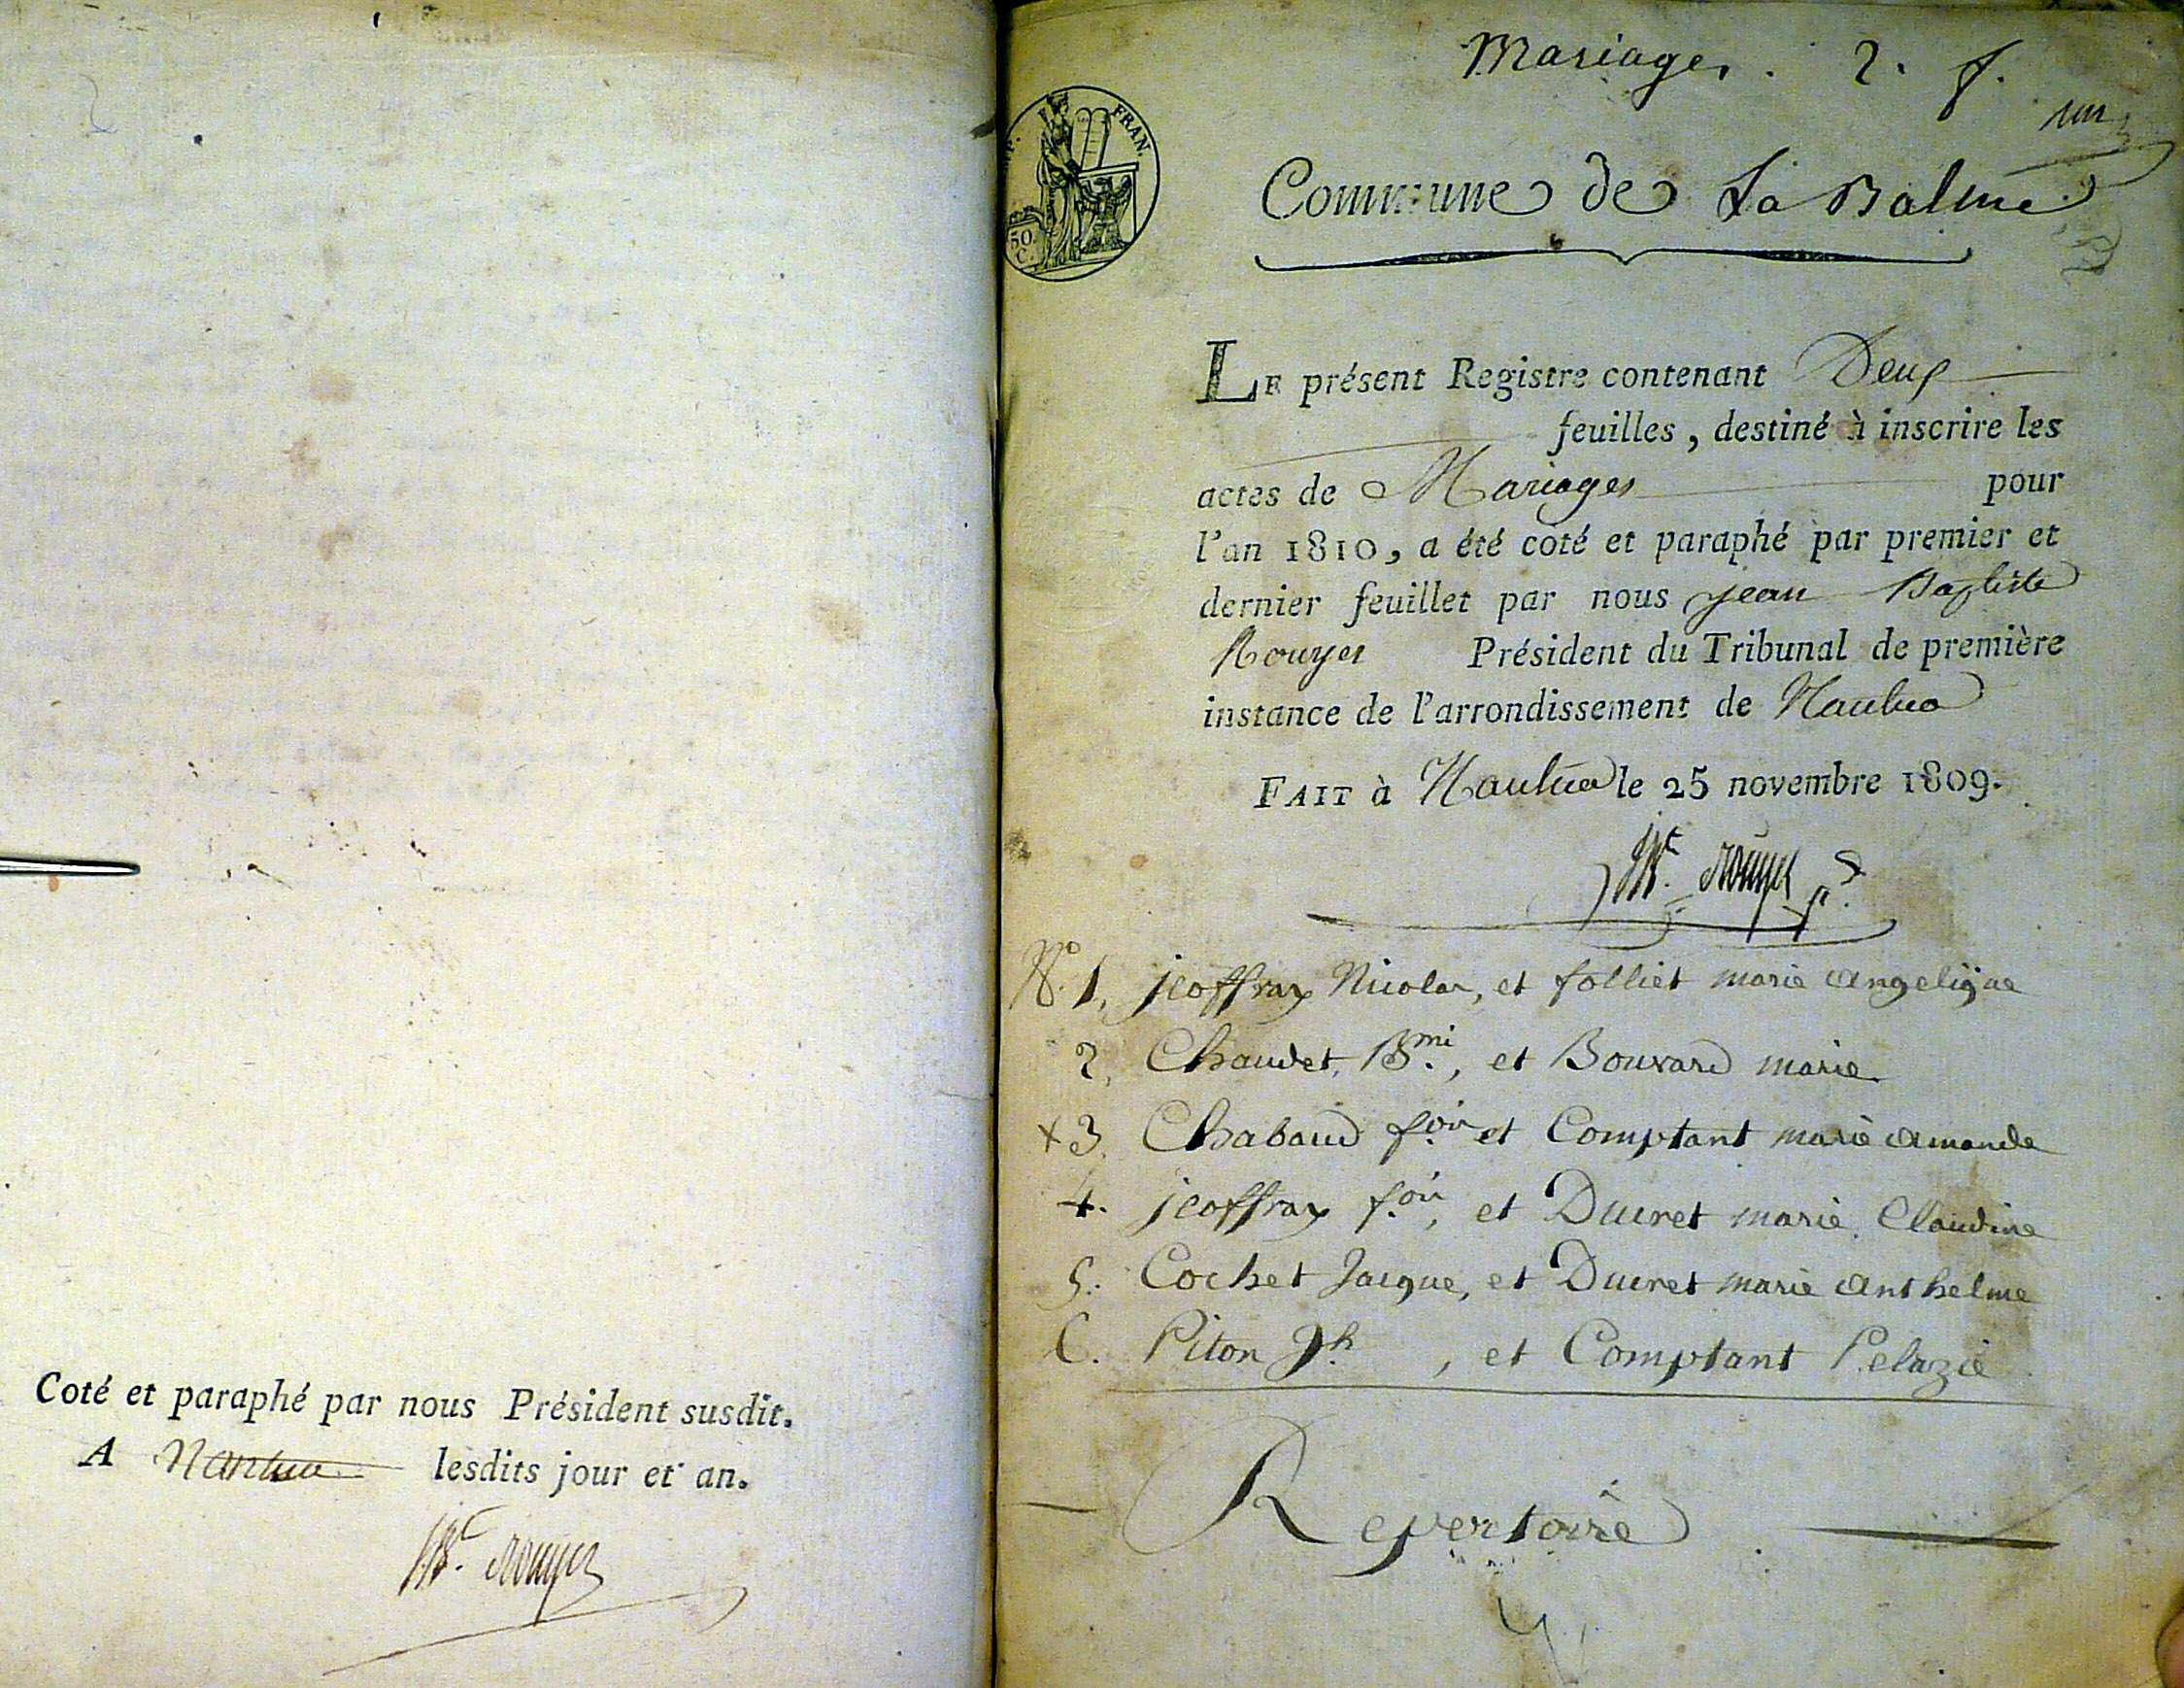 Coté et paraphé par nous Président susdit.
A Nantua lesdits jour et an.
JB.te rouyer
Mariages. 2. f.
un
FRAN.
50.
C.
Commune de La Balme
LE présent Registre contenant Deux
feuilles, destiné à inscrire les
actes de Mariages pour
l'an 1810, a été coté et paraphé par premier et
dernier feuillet par nous jean Baptiste
Rouyer Président du Tribunal de première
instance de l'arrondissement de Nantua
FAIT à Nantua le 25 novembre 1809.
JB.te rouyer
N.o 1, jeoffray Nicolas, et folliet marie angelique
2, Chaudet, B.mi, et Bouvard marie
+3. Chabaud f.ois et Comptant marie amande
4. jeoffray f.ois, et Ducret marie Claudine
5. Cochet Jacque, et Ducret marie anthelme
6. Piton J.h, et Comptant Pelazie
Repertoire